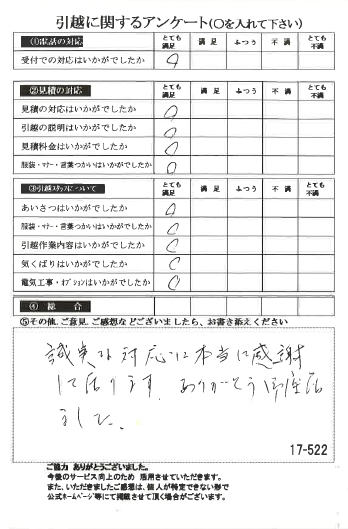 引越に関するアンケート(〇を入れて下さい)
①電話の対応 とても満足 満足 ふつう 不満 とても不満
受付での対応はいかがでしたか
②見積の対応 とても満足 満足 ふつう 不満 とても不満
見積の対応はいかがでしたか
引越の説明はいかがでしたか
見積料金はいかがでしたか
服装・マナー・言葉つかいはいかがでしたか
③引越スタッフについて とても満足 満足 ふつう 不満 とても不満
あいさつはいかがでしたか
服装・マナー・言葉つかいはいかがでしたか
引越作業内容はいかがでしたか
気くばりはいかがでしたか
電気工事・オプションはいかがでしたか
④ 総 合
⑤その他、ご意見、ご感想などございましたら、お書き添えください
誠実な対応に本当に感謝
して居ります。ありがとうございま
ました。
17-522
ご協力 ありがとうございました。
今後のサービス向上のため 活用させていただきます。
また、いただきましたご感想は、個人が特定できない形で
公式ホームページ等にて掲載させて頂く場合がございます。